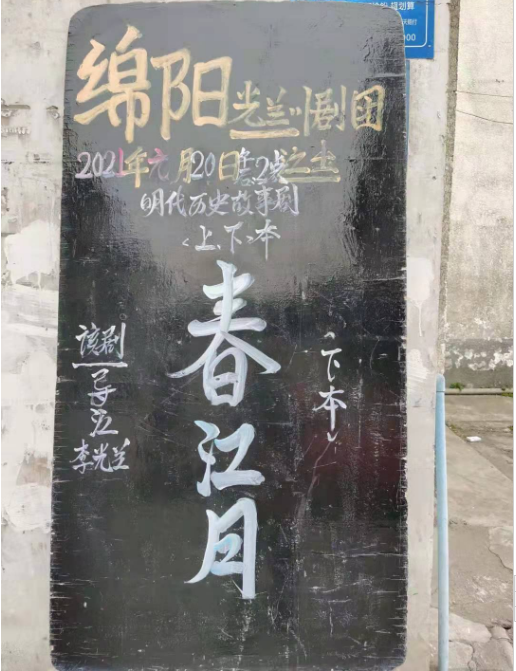 绵阳光兰川剧团
2021年元月20日
明代历史故事剧
<上、下>本
春江月
(下本)
该剧
导应
李光兰